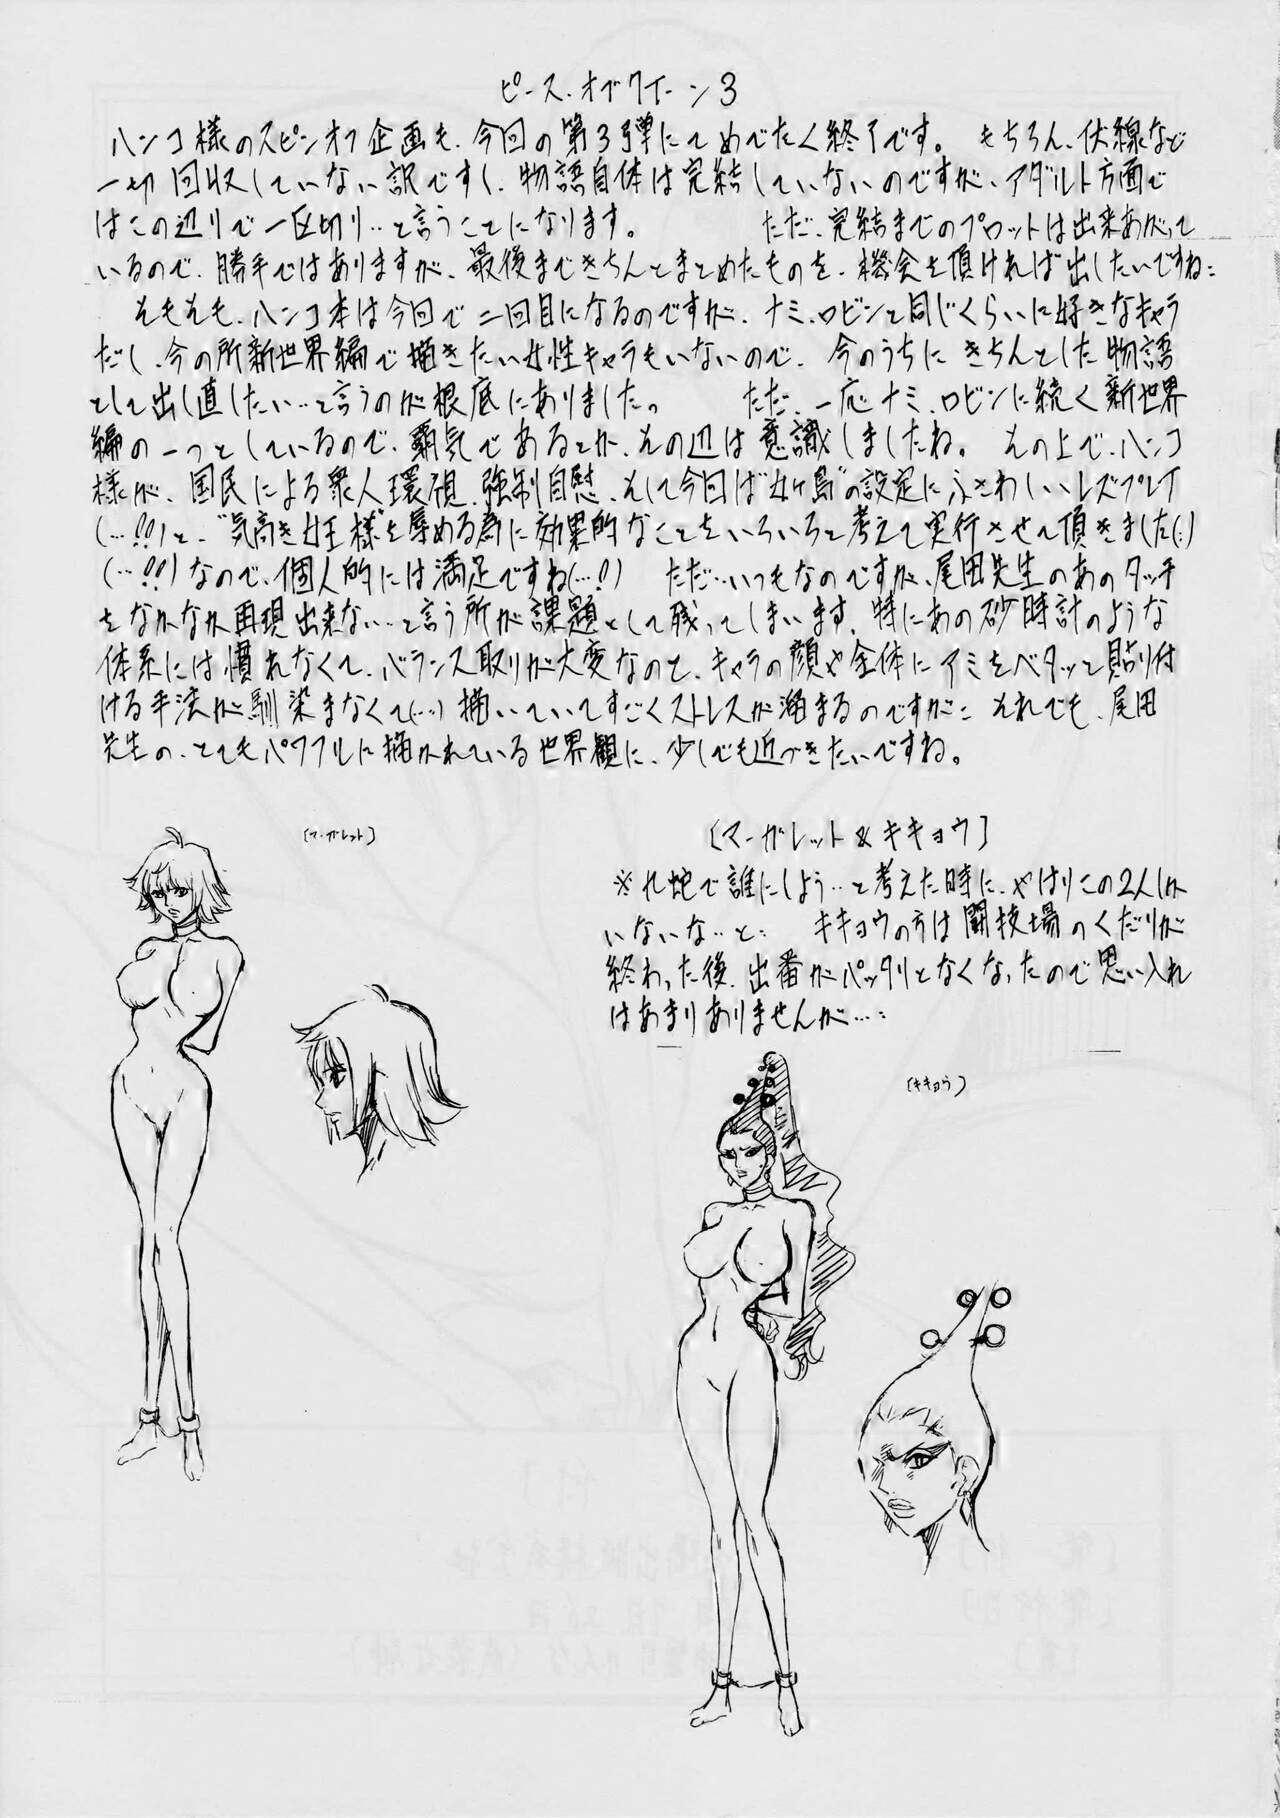 ピース・オブクイーン3
ハンコ様のスピンオフ企画も、今回の第3弾にてめでたく終了です。 もちろん、伏線など
一切回収していない訳ですし、物語自体は完結していないのですが、アダルト方面で
はこの辺りで一区切り…と言うことになります。 ただ、完結までのプロットは出来あがって
いるので、勝手ではありますが、最後まできちんとまとめたものを、機会を頂ければ出したいですね…
そもそも、ハンコ本は今回で二回目になるのですが、ナミ、ロビンと同じくらいに好きなキャラ
だし、今の所新世界編で描きたい女性キャラもいないので、今のうちにきちんとした物語
として出し直したい…と言うのが根底にありました。 ただ、一応ナミ、ロビンに続く新世界
編の一つとしているので、覇気であるとか、その辺は意識しましたね。 その上で、ハンコ
様が、国民による衆人環視、強制自慰、そして今回は“女ヶ島”の設定にふさわしいレズプレイ
(…!!)と、“気高き女王様”を辱める為に効果的なことをいろいろと考えて実行させて頂きました(…)
(…!!)なので、個人的には満足ですね(…!) ただ…いつもなのですが、尾田先生のあのタッチ
をなかなか再現出来ない…と言う所が課題として残ってしまいます、特にあの砂時計のような
体系には慣れなくて、バランス取りが大変なのと、キャラの顔や全体にアミをベタッと貼り付
ける手法が馴染まなくて(…)描いていてすごくストレスが溜まるのですが… それでも、尾田
先生の、とてもパワフルに描かれている世界観に、少しでも近づきたいですね。
[マーガレット]
[マーガレット&キキョウ]
※九蛇で誰にしよう…と考えた時に、やはりこの2人しか
いないな…と… キキョウの方は闘技場のくだりが
終わった後、出番がパッタリとなくなったので思い入れ
はあまりありませんが……
[キキョウ]